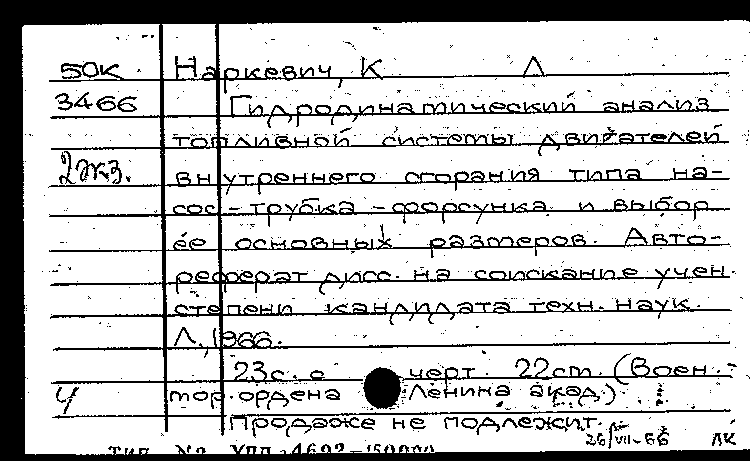 50к Наркевич, К Л
3466 Гидродинатический анализ
топливной системы двигателей
2 экз. внутреннего сгорания типа на-
сос-трубка-форсунка и выбор
ее основных размеров. Авто-
реферат дисс. на соискание учен.
степени кандидата техн. наук.
Л., 1966.
23с. с черт. 22см. (Воен.-
4 мор. ордена Ленина акад.)
Продаже не подлежит.
26/VII-66 ЛК